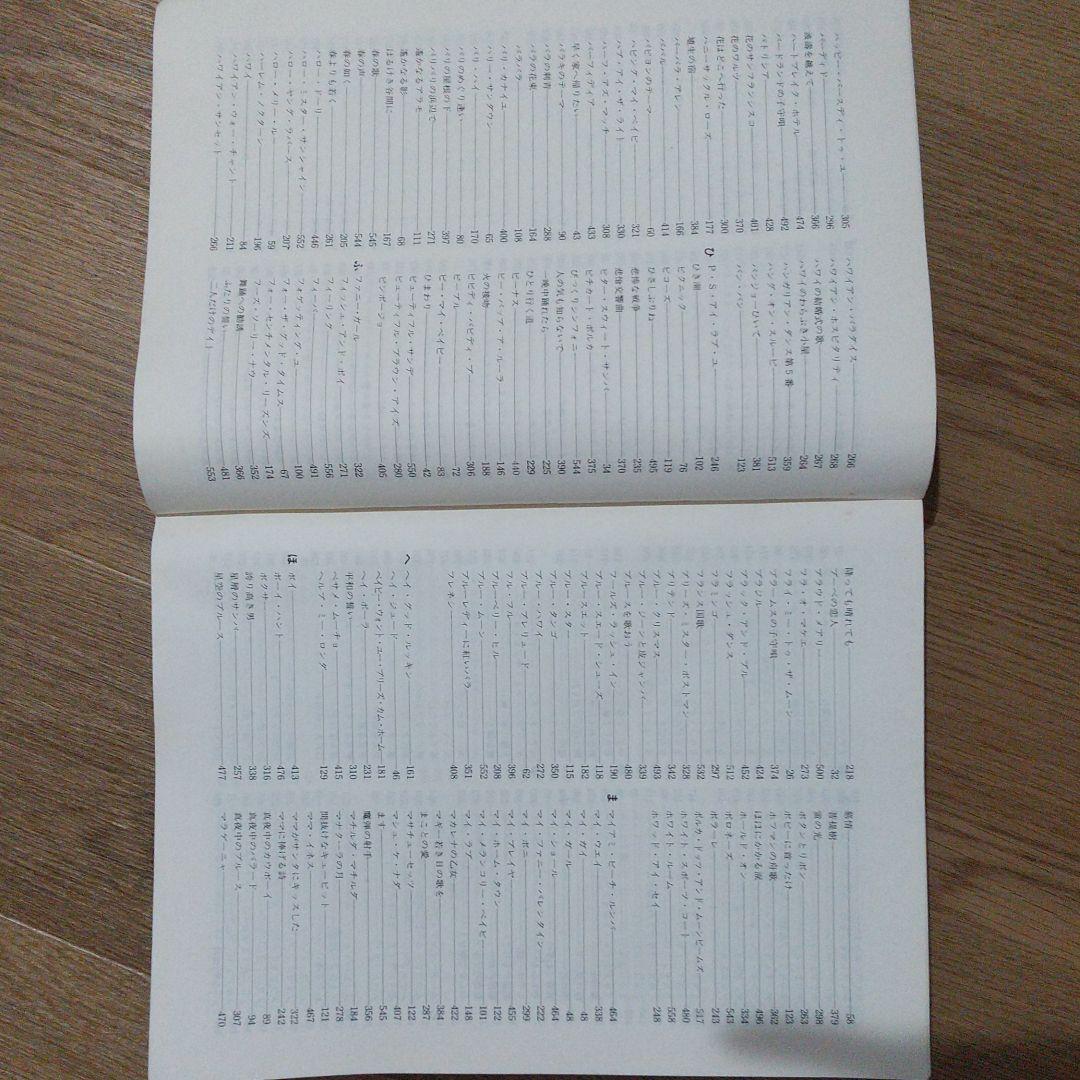 ハッピー・バースデイ・トゥ・ユー 305
バーディド 296
波濤を越えて 366
ハートブレイク・ホテル 474
バードランドの子守唄 492
パトリシア 428
花のサンフランシスコ 401
花のワルツ 370
花はどこへ行った 300
ハニーサックル・ローズ 177
埴生の宿 384
バーバラ・アレン 166
バルバル 411
パピヨンのテーマ 60
ハビング・マイ・ベイビー 321
ハブ・アイ・ザ・ライト 330
ハーフ・アズ・マッチ 308
パーフィディア 433
早く家へ帰りたい 43
バラキのテーマ 90
バラの刺青 288
バラの花束 164
バラバラ 108
バリ・カナイユ 400
バリー・サンダウン 65
バリ・ハイ 170
パリのめぐり逢い 80
パリの屋根の下 397
パリパリの浜辺で 271
遥かなるアラモ 111
遥かなる影 68
はるけき谷間に 167
春の歌 545
春の声 544
春の如く 205
春よりも若く 261
ハロー・ドーリ 446
ハロー・ミスター・サンシャイン 552
ハロー・ヤング・ラバース 207
ハロー・メリー・ルー 59
ハーレム・ノクターン 196
ハワイ 84
ハワイアン・ウォー・チャント 211
ハワイアン・サンセット 266
ハワイアン・パラダイス 266
ハワイアン・ホスピタリティ 268
ハワイの結婚式の歌 267
ハワイのわらぶき小屋 264
ハンガリアン・ダンス第5番 359
ハング・オン・スルーピー 513
バンジョーひいて 381
バン・バン 123
ひ
P・S・アイ・ラブ・ユー 246
ひき潮 102
ピクニック 76
ビコーズ 119
ひさしぶりね 495
悲惨な戦争 235
悲愴交響曲 370
ビター・スウィート・サンバ 34
ピチカート・ポルカ 375
びっくりシンフォニー 544
人の気も知らないで 390
一晩中踊れたら 225
ひとり行く道 229
ビーナス 440
ビー・バップ・ア・ルーラ 146
火の接吻 188
ビビディ・バビディ・ブー 306
ピープル 72
ビー・マイ・ベイビー 83
ひまわり 42
ビューティフル・サンデー 550
ビューティフル・ブラウン・アイズ 280
ビンボージョ 405
ふ
ファニー・ガール 322
フィッシュ・アンド・ポイ 271
フィーリング 556
フィーバー 491
フォゲッティング・ユー 100
フォー・ザ・グッド・タイムス 67
フォー・センチメンタル・リーズンズ 174
フーズ・ソーリー・ナウ 352
舞踏への勧誘 366
ふたりの誓い 481
二人だけのデイト 553
降っても晴れても 218
ブーベの恋人 32
プラウド・メアリー 500
フラ・オ・マケエ 273
フライ・ミー・トゥ・ザ・ムーン 26
ブラームスの子守唄 374
ブラジル 424
ブラック・アンド・ブルー 452
フラッシュ・ダンス 512
フラミンゴ 297
フランス国歌 532
プリーズ・ミスター・ポストマン 328
プリテンド 342
ブルー・クリスマス 493
ブルー・ジーンと皮ジャンパー 339
ブルースを歌おう 480
フールズ・ラッシュ・イン 190
ブルー・スエード・シューズ 118
ブルースエット 182
ブルー・スター 115
ブルー・タンゴ 350
ブルー・ハワイ 272
ブルー・プレリュード 62
フル・フル 396
ブルーベリー・ヒル 208
ブルー・ムーン 552
ブルーレディーに紅いバラ 351
フレネシー 408
へ
ヘイ・グッド・ルッキン 161
ヘイ・ジュード 46
ベイビー・ウォント・ユー・プリーズ・カム・ホーム 181
ヘイ・ポーラ 231
平和の誓い 310
ベサメ・ムーチョ 415
ヘルプ・ミー・ロンダ 129
ほ
ボイ 413
ボーイ・ハント 476
ボクサー 316
誇り高き男 338
星屑のサンバ 257
星空のブルース 477
慕情 58
菩提樹 379
蛍の光 298
ボタンとリボン 263
ボビーに首ったけ 123
ホフマンの舟歌 362
ほほにかかる涙 496
ホールド・オン 334
ポロネーズ 543
ボラーレ 243
ポルカ・ドッツ・アンド・ムーンビームズ 517
ホワイト・スポーツ・コート 480
ホワイト・ルーム 558
ホワッド・アイ・セイ 248
ま
マイアミ・ビーチ・ルンバ 464
マイ・ウエイ 338
マイ・ガイ 48
マイ・ガール 48
マイ・ショール 464
マイ・ファニー・バレンタイン 222
マイ・ボニー 299
マイ・プレイヤー 455
マイ・ホーム・タウン 122
マイ・メランコリー・ベイビー 101
マイ・ラブ 148
マカレナの乙女 422
マギー若き日の歌を 384
まことの愛 287
マサチューセッツ 122
マシュ・ケ・ナダ 407
ます 545
魔弾の射手 356
マチルダ・マチルダ 184
マナクーラの月 278
間抜けなキューピット 121
ママ・イネス 467
ママがサンタにキッスした 322
ママに捧げる詩 242
真夜中のカウボーイ 89
真夜中のバラード 94
真夜中のブルース 307
マラゲーニャ 470